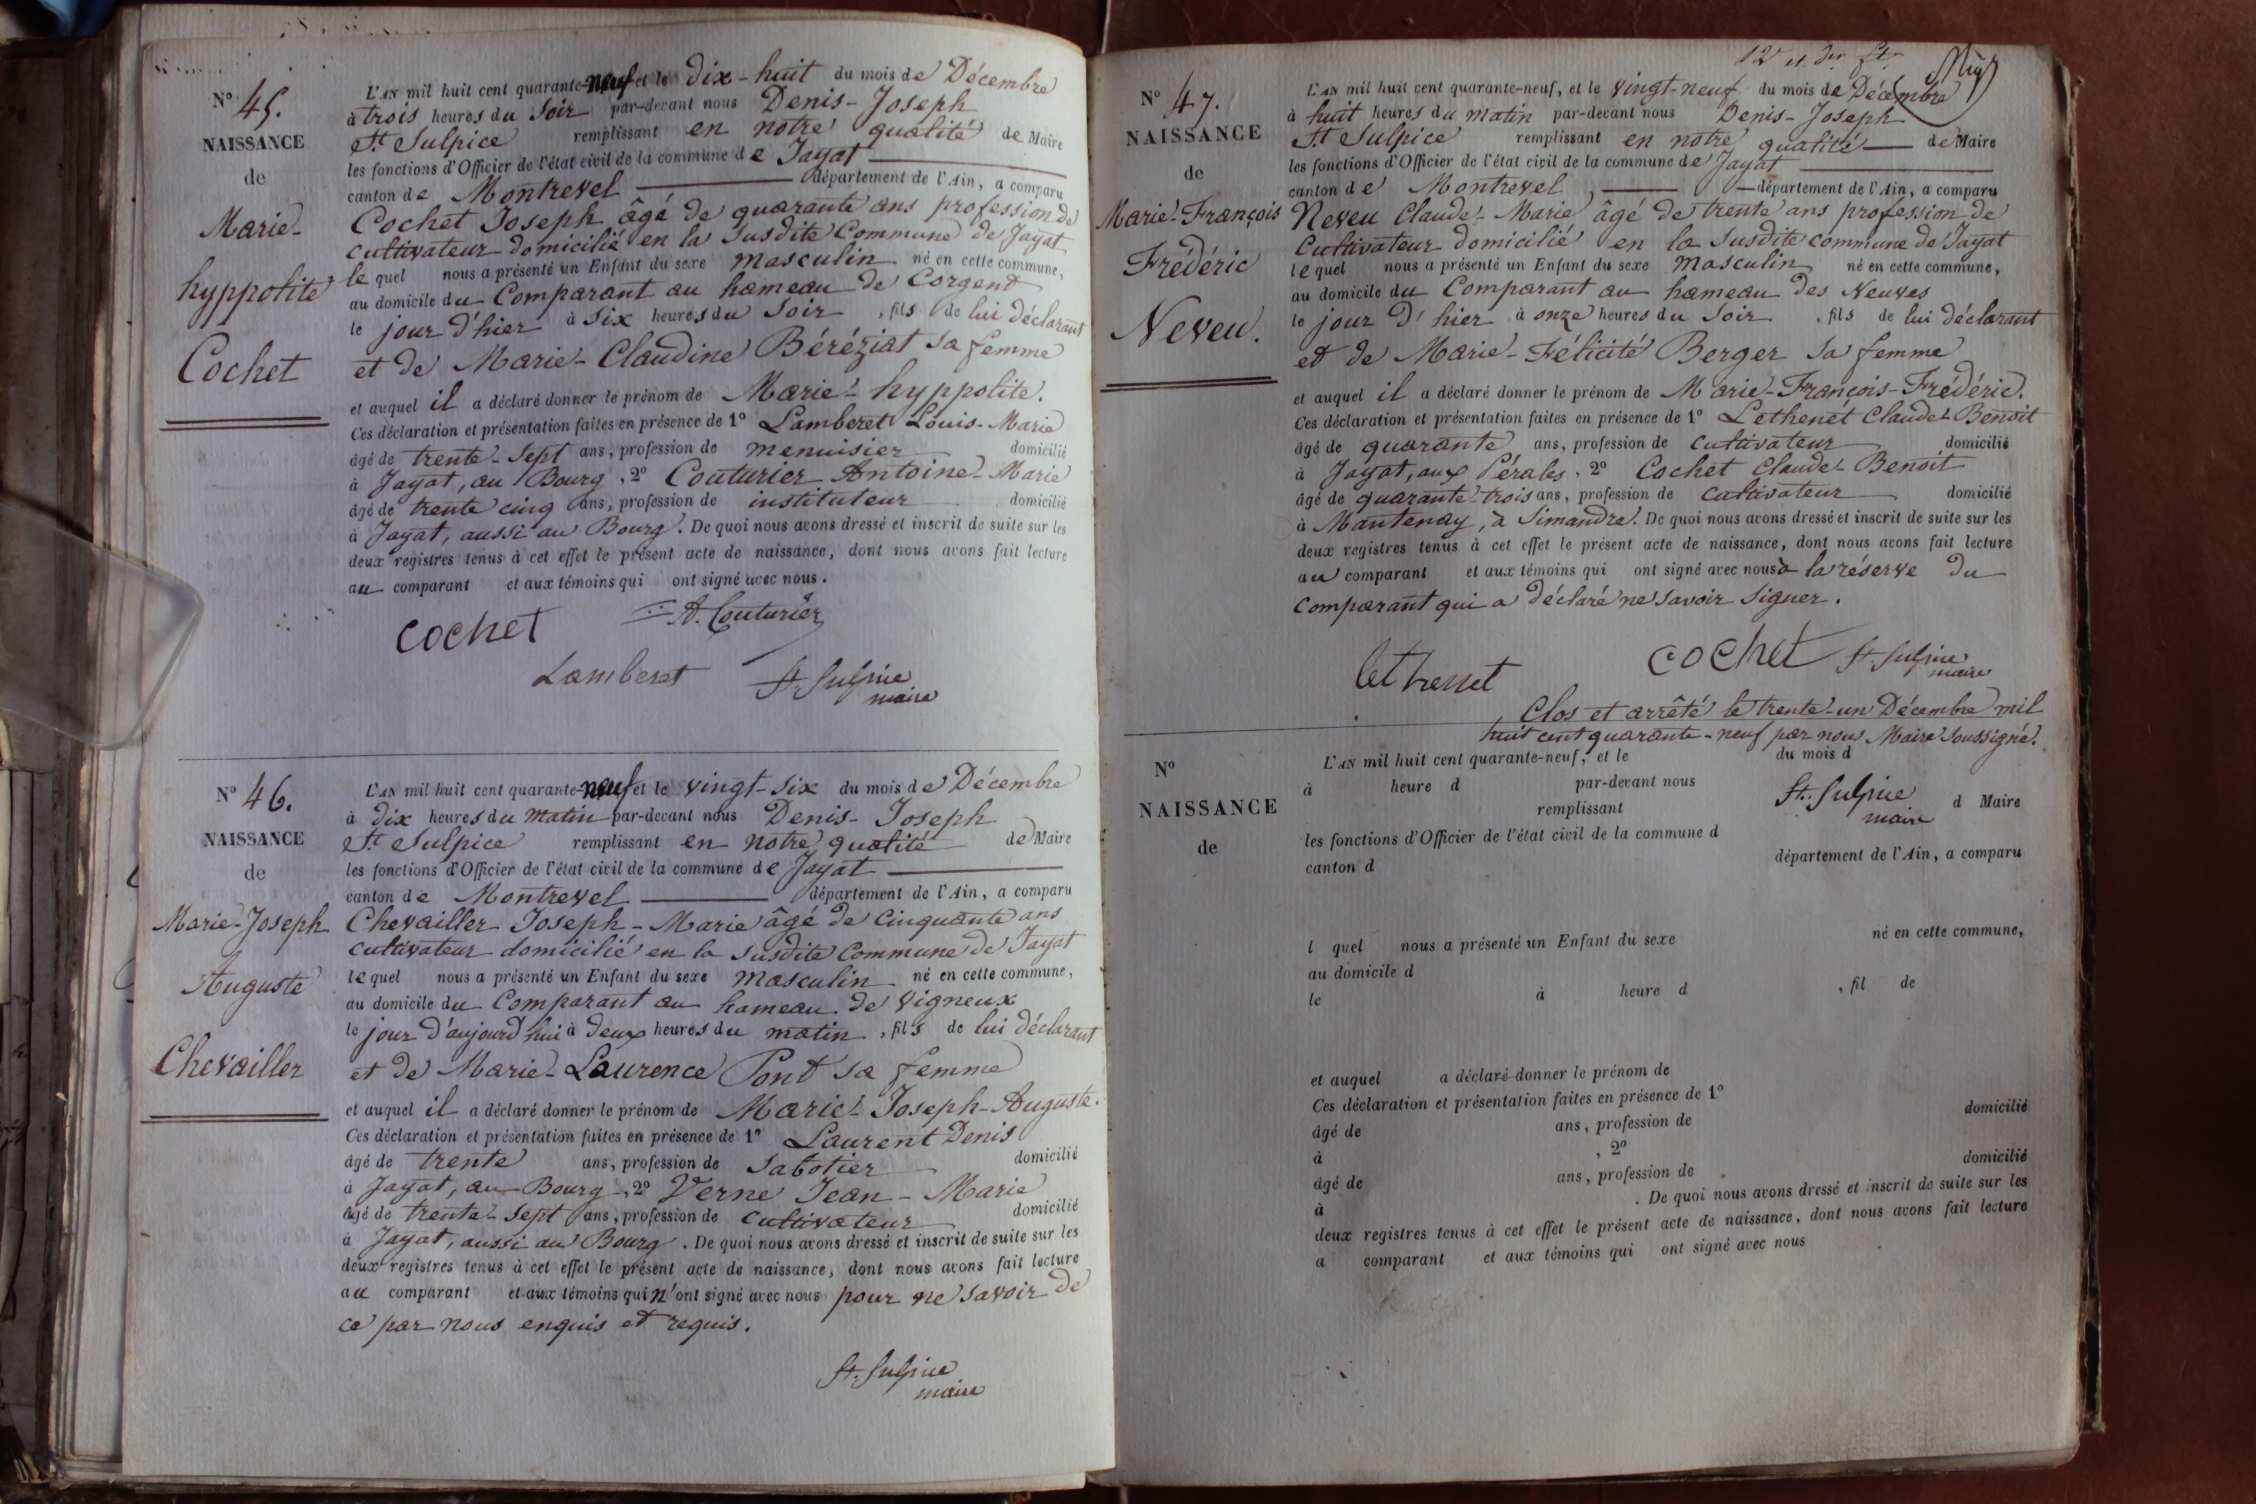 N.o 45.
NAISSANCE
de
Marie-
hyppolite
Cochet
L'AN mil huit cent quarante-neuf et le dix-huit du mois de Décembre
à trois heures du soir par-devant nous Denis-Joseph
St Sulpice remplissant en notre qualité de Maire
les fonctions d'Officier de l'état civil de la commune de Jayat
canton de Montrevel département de l'Ain, a comparu
Cochet Joseph âgé de quarante ans profession de
cultivateur domicilié en la susdite Commune de Jayat
lequel nous a présenté un Enfant du sexe masculin né en cette commune,
au domicile du Comparant au hameau de Corgent
le jour d'hier à six heures du soir, fils de lui déclarant
et de Marie-Claudine Béréziat sa femme
et auquel il a déclaré donner le prénom de Marie-hyppolite.
Ces déclaration et présentation faites en présence de 1o Lamberet Louis-Marie
âgé de trente-sept ans, profession de menuisier domicilié
à Jayat, au Bourg, 2o Couturier Antoine-Marie
âgé de trente cinq ans, profession de instituteur domicilié
à Jayat, aussi au Bourg. De quoi nous avons dressé et inscrit de suite sur les
deux registres tenus à cet effet le présent acte de naissance, dont nous avons fait lecture
au comparant et aux témoins qui ont signé avec nous.
COCHET A. Couturier
Lamberet St. Sulpice
maire
No 46.
NAISSANCE
de
Marie-Joseph
Auguste
Chevailler
L'AN mil huit cent quarante-neuf et le vingt-six du mois de Décembre
à dix heures du matin par-devant nous Denis-Joseph
St Sulpice remplissant en notre qualité de Maire
les fonctions d'Officier de l'état civil de la commune de Jayat
canton de Montrevel département de l'Ain, a comparu
Chevailler Joseph-Marie âgé de cinquante ans
cultivateur domicilié en la susdite Commune de Jayat
lequel nous a présenté un Enfant du sexe masculin né en cette commune,
au domicile du Comparant au hameau de Vigneux
le jour d'aujourd'hui à deux heures du matin, fils de lui déclarant
et de Marie-Laurence Pont sa femme
et auquel il a déclaré donner le prénom de Marie-Joseph-Auguste.
Ces déclaration et présentation faites en présence de 1o Laurent Denis
âgé de trente ans, profession de sabotier domicilié
à Jayat, au Bourg, 2o Verne Jean-Marie
âgé de trente-sept ans, profession de cultivateur domicilié
à Jayat, aussi au Bourg. De quoi nous avons dressé et inscrit de suite sur les
deux registres tenus à cet effet le présent acte de naissance, dont nous avons fait lecture
au comparant et aux témoins qui n'ont signé avec nous pour ne savoir de
ce par nous enquis et requis.
St. Sulpice
maire
No 47.
NAISSANCE
de
Marie-François
Frédéric
Neveu.
L'AN mil huit cent quarante-neuf, et le vingt-neuf du mois de Décembre
à huit heures du matin par-devant nous Denis-Joseph
St Sulpice remplissant en notre qualité de Maire
les fonctions d'Officier de l'état civil de la commune de Jayat
canton de Montrevel, département de l'Ain, a comparu
Neveu Claude-Marie âgé de trente ans profession de
Cultivateur domicilié en la susdite commune de Jayat
lequel nous a présenté un Enfant du sexe masculin né en cette commune,
au domicile du Comparant au hameau des Neuves
le jour d'hier à onze heures du soir, fils de lui déclarant
et de Marie-Félicité Berger sa femme
et auquel il a déclaré donner le prénom de Marie-François-Frédéric.
Ces déclaration et présentation faites en présence de 1o Lethenet Claude-Benoit
âgé de quarante ans, profession de cultivateur domicilié
à Jayat, aux Pérales, 2o Cochet Claude-Benoit
âgé de quarante-trois ans, profession de cultivateur domicilié
à Mantenay, à Simandre. De quoi nous avons dressé et inscrit de suite sur les
deux registres tenus à cet effet le présent acte de naissance, dont nous avons fait lecture
au comparant et aux témoins qui ont signé avec nous à la réserve du
comparant qui a déclaré ne savoir signer.
COCHET St. Sulpice
maire
Clos et arrêté le trente-un Décembre mil
huit cent quarante-neuf par nous Maire soussigné.
St. Sulpice
maire
No
NAISSANCE
de
L'AN mil huit cent quarante-neuf, et le du mois d
à heure d par-devant nous
remplissant d Maire
les fonctions d'Officier de l'état civil de la commune d
canton d département de l'Ain, a comparu
l quel nous a présenté un Enfant du sexe né en cette commune,
au domicile d
le à heure d , fil de
et auquel a déclaré donner le prénom de
Ces déclaration et présentation faites en présence de 1o
âgé de ans, profession de domicilié
à , 2o
âgé de ans, profession de domicilié
à . De quoi nous avons dressé et inscrit de suite sur les
deux registres tenus à cet effet le présent acte de naissance, dont nous avons fait lecture
a comparant et aux témoins qui ont signé avec nous